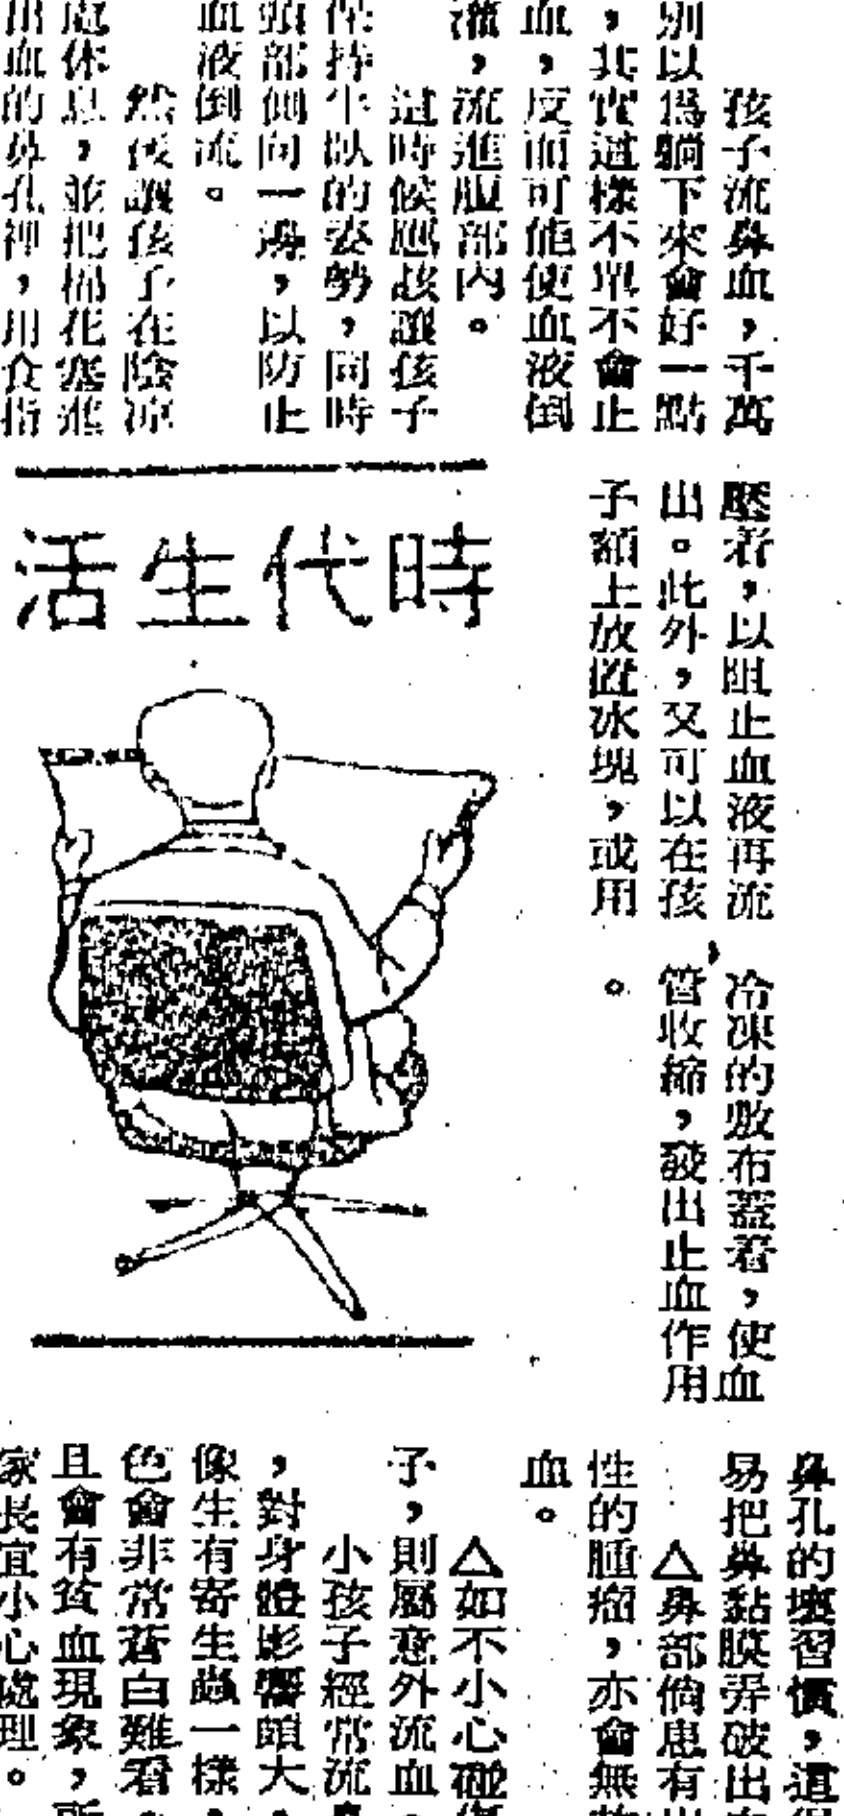 孩子流鼻血，千萬
別以爲躺下來會好一點
，其實這樣不單不會止
血，反而可能使血液倒
灌，流進腹部內。
這時候應該讓孩子
保持半臥的姿勢，同時
頭部側向一邊，以防止
血液倒流。
然後讓孩子在陰凉
處休息，並把棉花塞進
出血的鼻孔裡，用食指
壓着，以阻止血液再流
出。此外，又可以在孩
子額上放置冰塊，或用
冷凍的敷布蓋着，使血
管收縮，發出止血作用
。
時代生活
鼻孔的壞習慣，這
易把鼻黏膜弄破出
△鼻部倘患有
性的腫瘤，亦會無
血。
△如不小心碰
子，則屬意外流血
小孩子經常流
，對身體影響頗大
像生有寄生蟲一樣
色會非常蒼白難看
且會有貧血現象，所
家長宜小心處理。